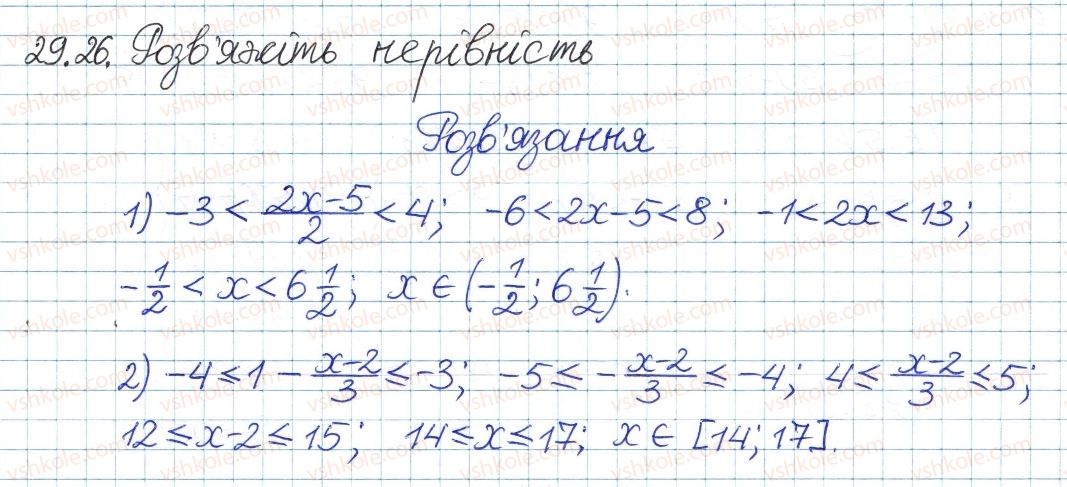 29.26. Розв'яжіть нерівність
Розв'язання
1) -3 < \frac{2x-5}{2} < 4; -6 < 2x-5 < 8; -1 < 2x < 13;
-\frac{1}{2} < x < 6\frac{1}{2}; x ∈ (-\frac{1}{2}; 6\frac{1}{2}).
2) -4 ≤ 1 - \frac{x-2}{3} ≤ -3; -5 ≤ -\frac{x-2}{3} ≤ -4; 4 ≤ \frac{x-2}{3} ≤ 5;
12 ≤ x-2 ≤ 15; 14 ≤ x ≤ 17; x ∈ [14; 17].